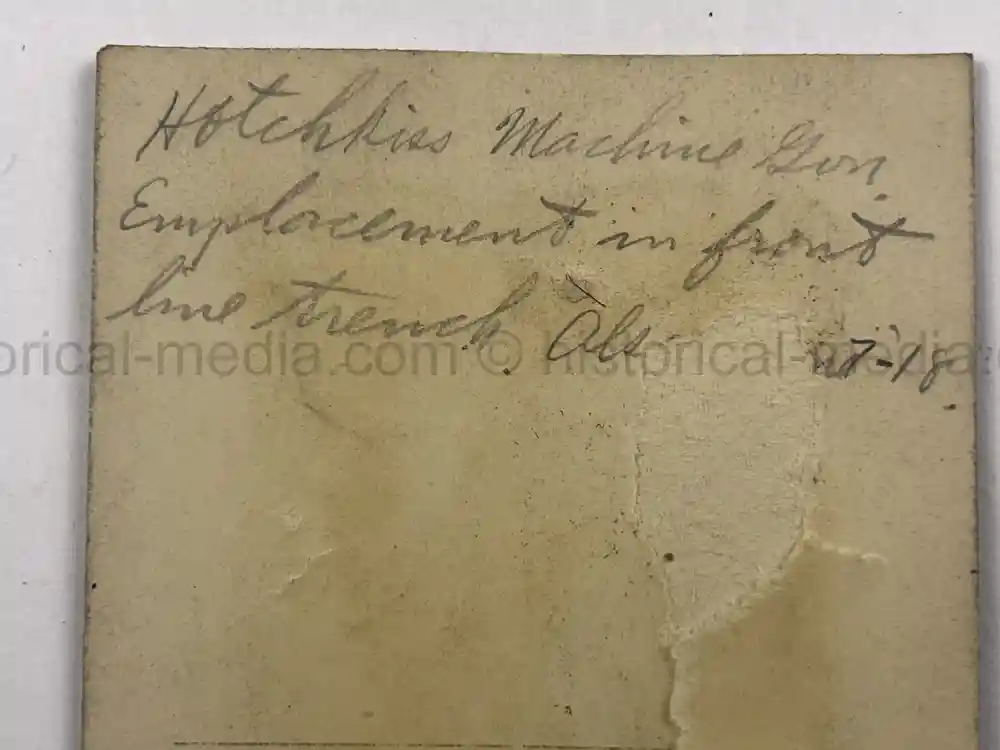 Hotchkiss Machine Gun
Emplacement in front
line trench Als
7-18.
historical-media.com © historical-media.